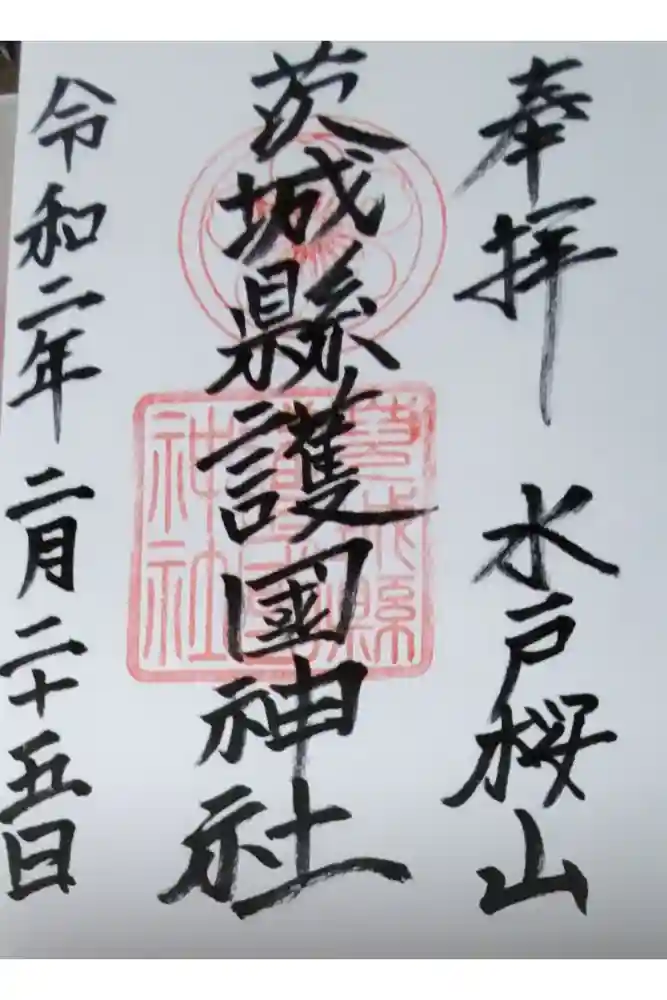 奉拝 水戸桜山
茨城縣護國神社
茨城縣護國神社
令和二年 二月二十五日